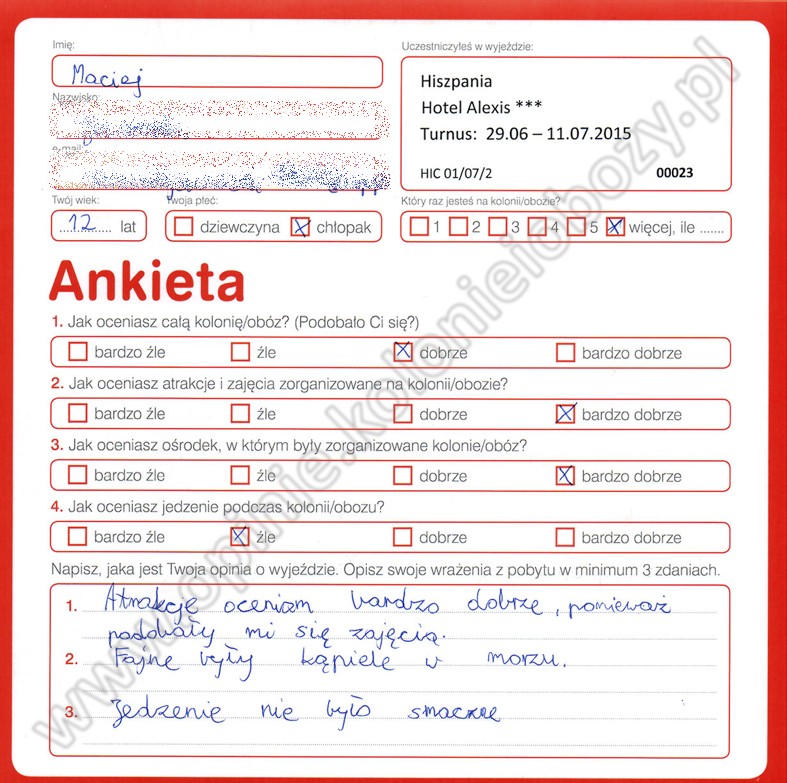 Imię:
Maciej
Nazwisko:
e-mail:
Twój wiek:
12 lat
Twoja płeć:
dziewczyna chłopak
Uczestniczyłeś w wyjeździe:
Hiszpania
Hotel Alexis ***
Turnus: 29.06 – 11.07.2015
HIC 01/07/2 00023
Który raz jesteś na kolonii/obozie?
1 2 3 4 5 więcej, ile .......
Ankieta
1. Jak oceniasz całą kolonię/obóz? (Podobało Ci się?)
bardzo źle źle dobrze bardzo dobrze
2. Jak oceniasz atrakcje i zajęcia zorganizowane na kolonii/obozie?
bardzo źle źle dobrze bardzo dobrze
3. Jak oceniasz ośrodek, w którym były zorganizowane kolonie/obóz?
bardzo źle źle dobrze bardzo dobrze
4. Jak oceniasz jedzenie podczas kolonii/obozu?
bardzo źle źle dobrze bardzo dobrze
Napisz, jaka jest Twoja opinia o wyjeździe. Opisz swoje wrażenia z pobytu w minimum 3 zdaniach.
1. Atrakcję oceniam bardzo dobrze, ponieważ
podobały mi się zajęcia.
2. Fajne były kąpiele w morzu.
3. Jedzenie nie było smaczne
www.opinie.kolonieiobozy.pl